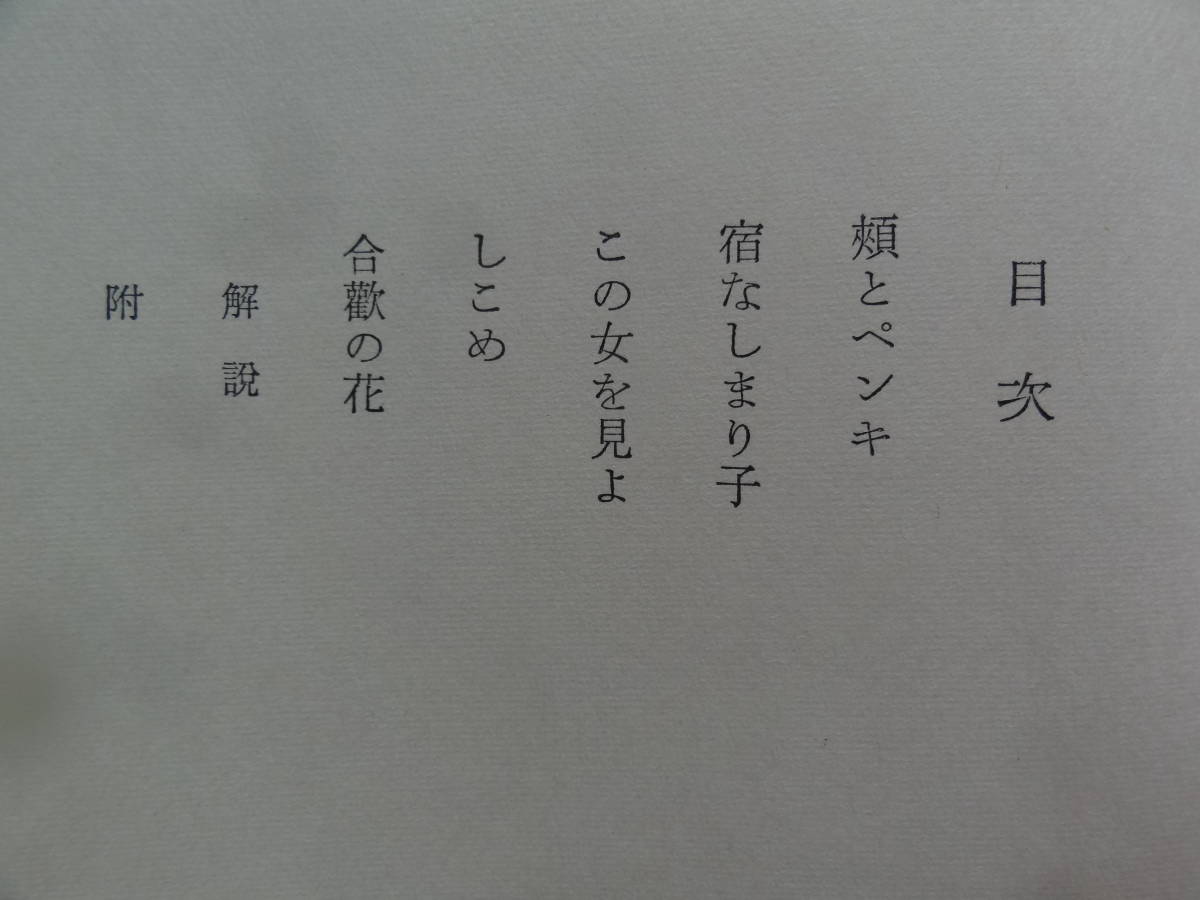 目次
頰とペンキ
宿なしまり子
この女を見よ
しこめ
合歡の花
解說
附